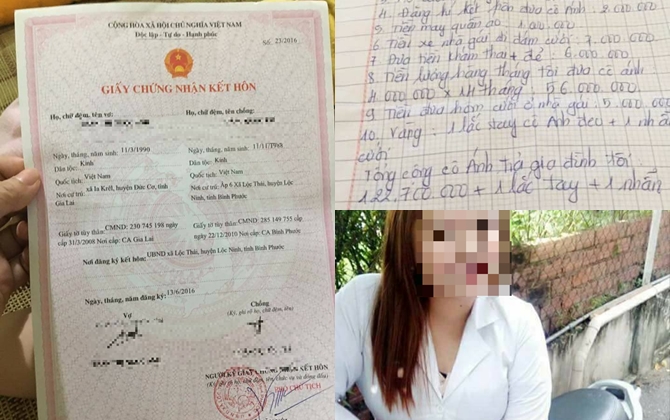 CỘNG HÒA XÃ HỘI CHỦ NGHĨA VIỆT NAM
Độc lập - Tự do - Hạnh phúc
Số 23/2016
GIẤY CHỨNG NHẬN KẾT HÔN
Họ, chữ đệm, tên vợ:
Họ, chữ đệm, tên chồng:
Ngày, tháng, năm sinh: 11/3/1990
Ngày, tháng, năm sinh:
Dân tộc: Kinh
Dân tộc: Kinh
Quốc tịch: Việt Nam
Quốc tịch: Việt Nam
Nơi cư trú: xã Ia Krêl, huyện Đức Cơ, tỉnh Gia Lai
Nơi cư trú: Ấp 6 Xã Lộc Thái, huyện Lộc Ninh, tỉnh Bình Phước
Giấy tờ tùy thân: CMND: 230 745 198 ngày cấp 31/3/2008 Nơi cấp: CA Gia Lai
Giấy tờ tùy thân: CMND: 285 149 755 cấp ngày 22/12/2010 Nơi cấp: CA Bình Phước
Nơi đăng ký kết hôn: UBND xã Lộc Thái, huyện Lộc Ninh, tỉnh Bình Phước
Ngày, tháng, năm đăng ký: 13/6/2016
Vợ
Chồng
(Ký, ghi rõ họ, chữ đệm, tên)
NGƯỜI KÝ GIẤY CHỨNG NHẬN KẾT HÔN
CHỦ TỊCH
4. Đăng kí kết hôn đưa cô Ánh: 2.000.000
5. Tiền may quần áo: 1.000.000
6. Tiền xe nhà gái đi đám cưới: 7.000.000
7. Đưa tiền khám thai + đẻ 6.000.000
8. Tiền lương hàng tháng tôi đưa cô ánh
4.000.000 x 14 tháng: 56.000.000
9. Tiền đưa hôm cưới ở nhà gái: 5.000.000
10. Vàng: 1 lắc tay cô Ánh đeo + 1 nhẫn
cưới
Tổng cộng cô Ánh trả gia đình tôi
122.700.000 + 1 lắc tay + 1 nhẫn